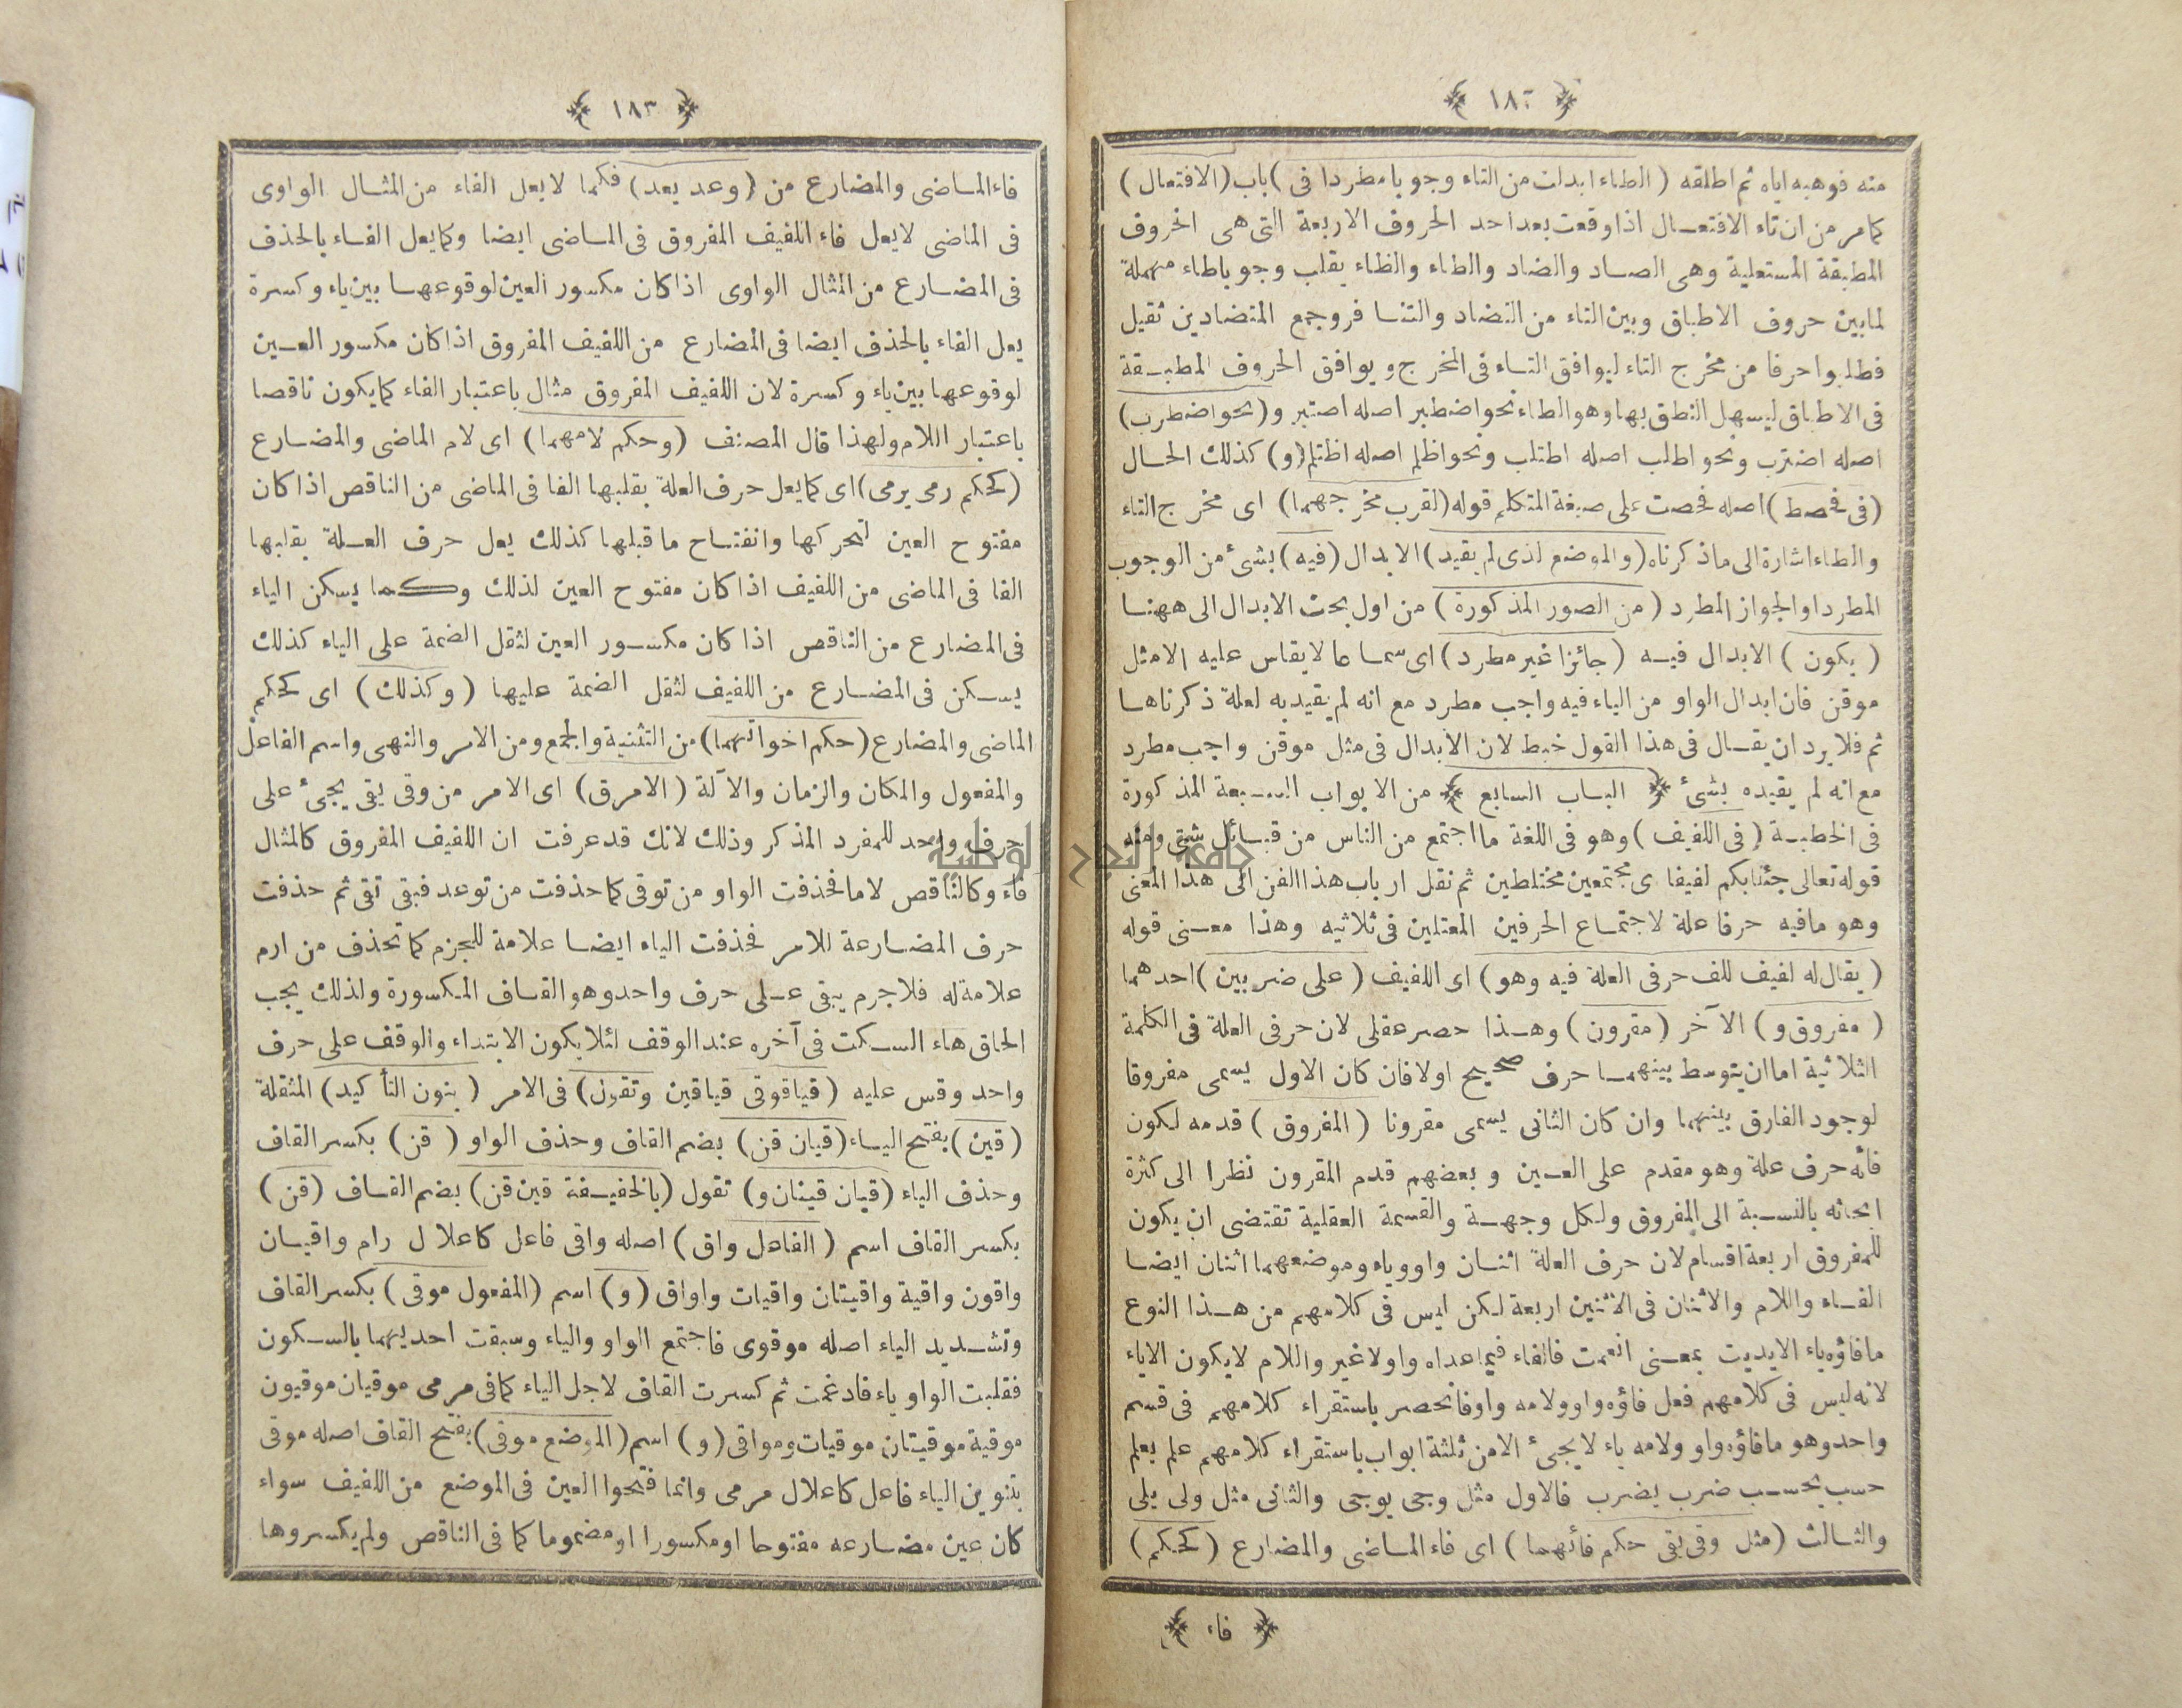 ﴿ ١٨٢ ﴾
منه فوهبه اياه ثم اطلقه ( الطاء ابدلت من التاء وجوبا مطردا فى ) باب (الافتعال )
كمامر من ان تاء الافتعال اذا وقعت بعد احد الحروف الاربعة التى هى الحروف
المطبقة المستعلية وهى الصاد والضاد والطاء والظاء يقلب وجوبا طاء مهملة
لمابين حروف الاطباق وبين التاء من التضاد والتنافر وجمع المتضادين ثقيل
فطلبوا حرفا من مخرج التاء ليوافق التاء فى المخرج ويوافق الحروف المطبقة
فى الاطباق ليسهل النطق بها وهو الطاء نحو اضطبر اصله اصتبر و (نحو اضطرب)
اصله اضترب ونحو اطلب اصله اطتلب ونحو اظلم اصله اظتلم (و) كذلك الحال
(فى فحصط) اصله فحصت على صيغة المتكلم قوله (لقرب مخرجهما) اى مخرج التاء
والطاء اشارة الى ماذكرناه (والموضع لذى لم يقيد) الابدال (فيه) بشئ من الوجوب
المطرد او الجواز المطرد ( من الصور المذكورة ) من اول بحث الابدال الى ههنا
( يكون ) الابدال فيه ( جائزا غير مطرد ) اى سماعا لا يقاس عليه الامثل
موقن فان ابدال الواو من الياء فيه واجب مطرد مع انه لم يقيد به لعلة ذكرناها
ثم فلا يرد ان يقال فى هذا القول خبط لان الابدال فى مثل موقن واجب مطرد
مع انه لم يقيده بشئ ﴿ الباب السابع ﴾ من الابواب السبعة المذكورة
فى الخطبة ( فى اللفيف ) وهو فى اللغة ما اجتمع من الناس من قبائل شتى ومنه
قوله تعالى جئنا بكم لفيفا ى مجتمعين مختلطين ثم نقل ارباب هذا الفن الى هذا المعنى
وهو مافيه حرفا علة لاجتماع الحرفين المعتلين فى ثلاثيه وهذا معنى قوله
( يقال له لفيف للف حرفى العلة فيه وهو ) اى اللفيف ( على ضربين ) احدهما
( مفروق و ) الآخر ( مقرون ) وهذا حصر عقلى لان حرفى العلة فى الكلمة
الثلاثية اما ان يتوسط بينهما حرف صحيح اولا فان كان الاول يسمى مفروقا
لوجود الفارق بينهما وان كان الثانى يسمى مقرونا ( المفروق ) قدمه لكون
فائه حرف علة وهو مقدم على العين وبعضهم قدم المقرون نظرا الى كثرة
ابحاثه بالنسبة الى المفروق ولكل وجهة والقسمة العقلية تقتضى ان يكون
للمفروق اربعة اقسام لان حرف العلة اثنان واو وياء وموضعهما اثنان ايضا
الفاء واللام والاثنان فى الاثنين اربعة لكن ليس فى كلامهم من هذا النوع
مافاؤه ياء الايديت بمعنى انعمت فالفاء فيما عداه واو لا غير واللام لا يكون الاياء
لانه ليس فى كلامهم فعل فاؤه واو ولامه واو فانحصر باستقراء كلامهم فى قسم
واحد وهو مافاؤه واو ولامه ياء لا يجئ الامن ثلثة ابواب باستقراء كلامهم علم يعلم
حسب يحسب ضرب يضرب فالاول مثل وجى يوجى والثانى مثل ولى يلى
والثالث ( مثل وقى يقى حكم فائهما ) اى فاء الماضى والمضارع ( كحكم )
﴿ فاء ﴾
﴿ ١٨٣ ﴾
فاء الماضى والمضارع من (وعد يعد) فكما لا يعل الفاء من المثال الواوى
فى الماضى لا يعل فاء اللفيف المفروق فى الماضى ايضا وكما يعل الفاء بالحذف
فى المضارع من المثال الواوى اذا كان مكسور العين لوقوعها بين ياء وكسرة
يعل الفاء بالحذف ايضا فى المضارع من اللفيف المفروق اذا كان مكسور العين
لوقوعها بين ياء وكسرة لان اللفيف المفروق مثال باعتبار الفاء كما يكون ناقصا
باعتبار اللام ولهذا قال المصنف (وحكم لامهما) اى لام الماضى والمضارع
(كحكم رمى يرمى) اى كما يعل حرف العلة بقلبها الفا فى الماضى من الناقص اذا كان
مفتوح العين لتحركها وانفتاح ماقبلها كذلك يعل حرف العلة بقلبها
الفا فى الماضى من اللفيف اذا كان مفتوح العين لذلك وكما يسكن الياء
فى المضارع من الناقص اذا كان مكسور العين لثقل الضمة على الياء كذلك
يسكن فى المضارع من اللفيف لثقل الضمة عليها ( وكذلك ) اى كحكم
الماضى والمضارع (حكم اخواتهما) من التثنية والجمع ومن الامر والنهى واسم الفاعل
والمفعول والمكان والزمان والآلة ( الامرق ) اى الامر من وقى يقى يجئ على
حرف واحد للمفرد المذكر وذلك لانك قد عرفت ان اللفيف المفروق كالمثال
فاء وكالناقص لاما فحذفت الواو من توقى كما حذفت من توعد فبقى تقى ثم حذفت
حرف المضارعة للامر فحذفت الياء ايضا علامة للجزم كما تحذف من ارم
علامة له فلاجرم يبقى على حرف واحد وهو القاف المكسورة ولذلك يجب
الحاق هاء السكت فى آخره عند الوقف لئلا يكون الابتداء والوقف على حرف
واحد وقس عليه ( قيا قوقى قيا قين وتقول ) فى الامر ( بنون التأكيد ) المثقلة
(قين) بفتح الياء (قيان قن) بضم القاف وحذف الواو ( قن ) بكسر القاف
وحذف الياء (قيان قينان و) تقول (بالخفيفة قين قن) بضم القاف (قن)
بكسر القاف اسم ( الفاعل واق ) اصله واقى فاعل كاعلال رام واقيان
واقون واقية واقيتان واقيات واواق (و) اسم (المفعول موقى) بكسر القاف
وتشديد الياء اصله موقوى فاجتمع الواو والياء وسبقت احديهما بالسكون
فقلبت الواو ياء فادغمت ثم كسرت القاف لاجل الياء كما فى مرمى موقيان موقيون
موقية موقيتان موقيات ومواقى (و) اسم (الموضع موقى) بفتح القاف اصله موقى
بتنوين الياء فاعل كاعلال مرمى وانما فتحوا العين فى الموضع من اللفيف سواء
كان عين مضارعه مفتوحا او مكسورا او مضموما كما فى الناقص ولم يكسروها
جامعة النجاح الوطنية